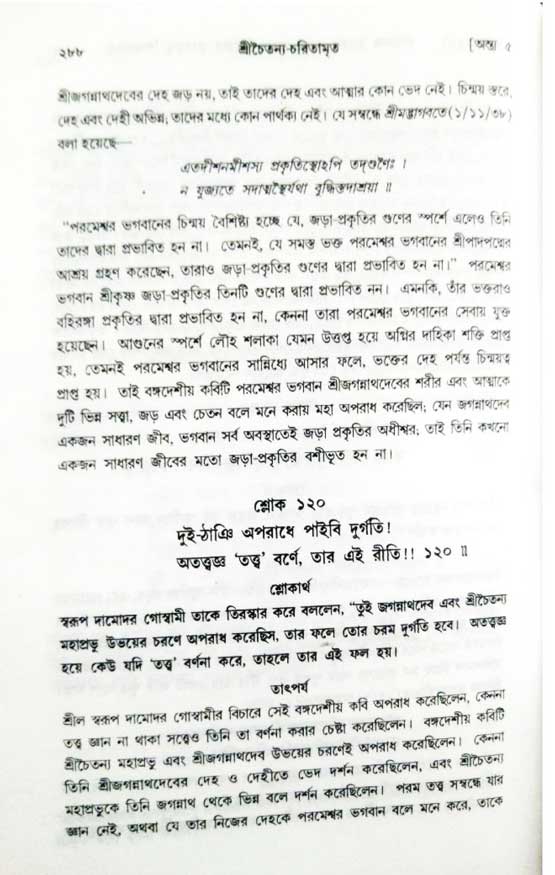 ২৮৮ শ্রীচৈতন্য-চরিতামৃত [অন্ত্য ৫
শ্রীজগন্নাথদেবের দেহ জড় নয়, তাই তাদের দেহ এবং আত্মার কোন ভেদ নেই। চিন্ময় স্তরে,
দেহ এবং দেহী অভিন্ন; তাদের মধ্যে কোন পার্থক্য নেই। যে সম্বন্ধে শ্রীমদ্ভাগবতে (১/১১/৩৮)
বলা হয়েছে—
এতদীশনমীশস্য প্রকৃতিস্থোঽপি তদ্গুণৈঃ।
ন যুজ্যতে সদাত্মস্থৈর্যথা বুদ্ধিস্তদাশ্রয়া ॥
"পরমেশ্বর ভগবানের চিন্ময় বৈশিষ্ট্য হচ্ছে যে, জড়া-প্রকৃতির গুণের স্পর্শে এলেও তিনি
তাদের দ্বারা প্রভাবিত হন না। তেমনই, যে সমস্ত ভক্ত পরমেশ্বর ভগবানের শ্রীপাদপদ্মের
আশ্রয় গ্রহণ করেছেন, তারাও জড়া-প্রকৃতির গুণের দ্বারা প্রভাবিত হন না।" পরমেশ্বর
ভগবান শ্রীকৃষ্ণ জড়া-প্রকৃতির তিনটি গুণের দ্বারা প্রভাবিত নন। এমনকি, তাঁর ভক্তরাও
বহিরঙ্গা প্রকৃতির দ্বারা প্রভাবিত হন না, কেননা তারা পরমেশ্বর ভগবানের সেবায় যুক্ত
হয়েছেন। আগুনের স্পর্শে লৌহ শলাকা যেমন উত্তপ্ত হয়ে অগ্নির দাহিকা শক্তি প্রাপ্ত
হয়, তেমনই পরমেশ্বর ভগবানের সান্নিধ্যে আসার ফলে, ভক্তের দেহ পর্যন্ত চিন্ময়ত্ব
প্রাপ্ত হয়। তাই বঙ্গদেশীয় কবিটি পরমেশ্বর ভগবান শ্রীজগন্নাথদেবের শরীর এবং আত্মাকে
দুটি ভিন্ন সত্ত্বা, জড় এবং চেতন বলে মনে করায় মহা অপরাধ করেছিল; যেন জগন্নাথদেব
একজন সাধারণ জীব, ভগবান সর্ব অবস্থাতেই জড়া প্রকৃতির অধীশ্বর; তাই তিনি কখনো
একজন সাধারণ জীবের মতো জড়া-প্রকৃতির বশীভূত হন না।
শ্লোক ১২০
দুই-ঠাঞি অপরাধে পাইবি দুর্গতি!
অতত্ত্বজ্ঞ 'তত্ত্ব' বর্ণে, তার এই রীতি!! ১২০ ॥
শ্লোকার্থ
স্বরূপ দামোদর গোস্বামী তাকে তিরস্কার করে বললেন, "তুই জগন্নাথদেব এবং শ্রীচৈতন্য
মহাপ্রভু উভয়ের চরণে অপরাধ করেছিস, তার ফলে তোর চরম দুর্গতি হবে। অতত্ত্বজ্ঞ
হয়ে কেউ যদি 'তত্ত্ব' বর্ণনা করে, তাহলে তার এই ফল হয়।
তাৎপর্য
শ্রীল স্বরূপ দামোদর গোস্বামীর বিচারে সেই বঙ্গদেশীয় কবি অপরাধ করেছিলেন, কেননা
তত্ত্ব জ্ঞান না থাকা সত্ত্বেও তিনি তা বর্ণনা করার চেষ্টা করেছিলেন। বঙ্গদেশীয় কবিটি
শ্রীচৈতন্য মহাপ্রভু এবং শ্রীজগন্নাথদেব উভয়ের চরণেই অপরাধ করেছিলেন। কেননা
তিনি শ্রীজগন্নাথদেবের দেহ ও দেহীতে ভেদ দর্শন করেছিলেন, এবং শ্রীচৈতন্য
মহাপ্রভুকে তিনি জগন্নাথ থেকে ভিন্ন বলে দর্শন করেছিলেন। পরম তত্ত্ব সম্বন্ধে যার
জ্ঞান নেই, অথবা যে তার নিজের দেহকে পরমেশ্বর ভগবান বলে মনে করে, তাকে